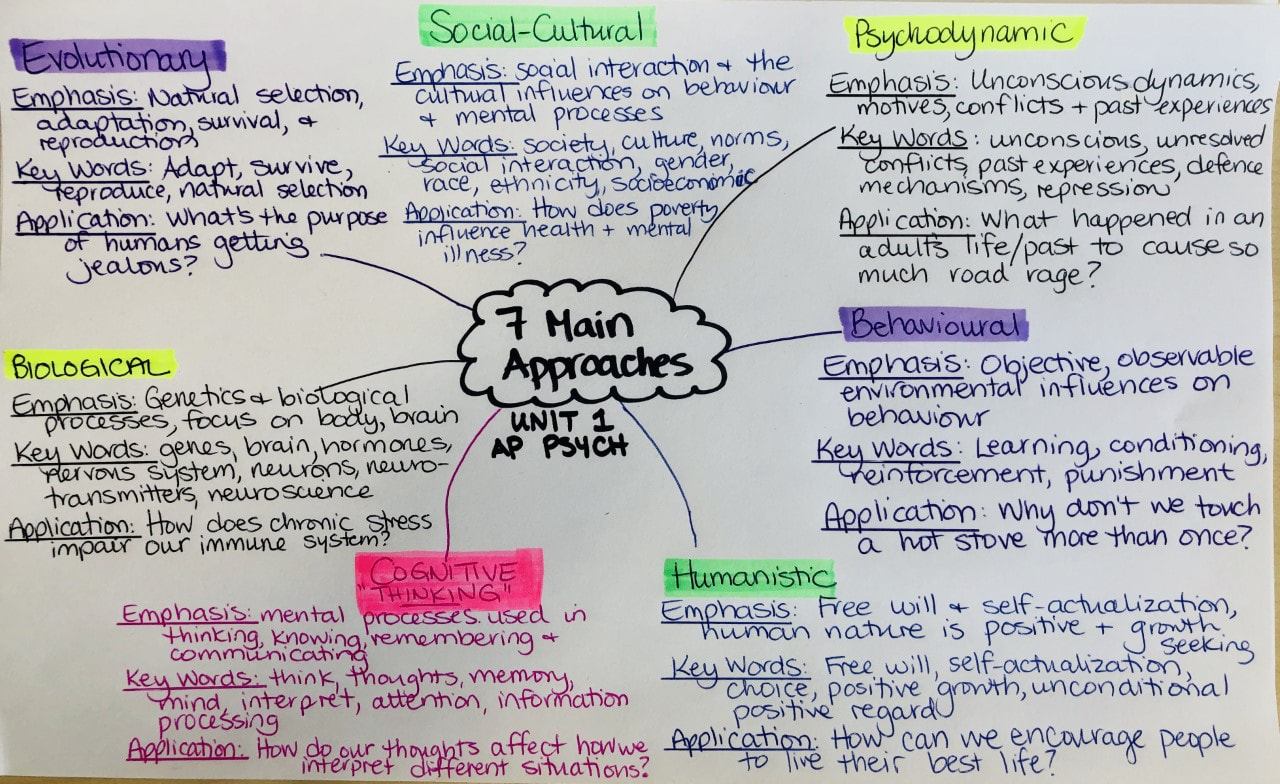 Evolutionary
Emphasis: Natural selection,
adaptation, survival, +
reproduction
Key Words: Adapt, survive,
reproduce, natural selection
Application: What's the purpose
of humans getting
jealous?
Social-Cultural
Emphasis: social interaction + the
cultural influences on behaviour
+ mental processes
Key Words: society, culture, norms,
social interaction, gender,
race, ethnicity, socioeconomic
Application: How does poverty
influence health + mental
illness?
Psychodynamic
Emphasis: Unconscious dynamics,
motives, conflicts + past experiences
Key Words: unconscious, unresolved
conflicts, past experiences, defence
mechanisms, repression
Application: What happened in an
adult's life/past to cause so
much road rage?
7 Main
Approaches
UNIT 1
AP PSYCH
BIOLOGICAL
Emphasis: Genetics & biological
processes, focus on body, brain
Key Words: genes, brain, hormones,
nervous system, neurons, neuro-
transmitters, neuroscience
Application: How does chronic stress
impair our immune system?
Behavioural
Emphasis: Objective, observable
environmental influences on
behaviour
Key Words: Learning, conditioning,
reinforcement, punishment
Application: Why don't we touch
a hot stove more than once?
COGNITIVE
"THINKING"
Emphasis: mental processes used in
thinking, knowing, remembering +
communicating
Key Words: think, thoughts, memory,
mind, interpret, attention, information
processing
Application: How do our thoughts affect how we
interpret different situations?
Humanistic
Emphasis: Free will + self-actualization,
human nature is positive + growth
seeking
Key Words: Free will, self-actualization,
choice, positive growth, unconditional
positive regard
Application: How can we encourage people
to live their best life?